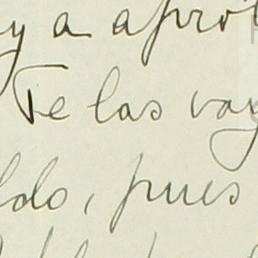 y a apro
Te las voy
ldo, pues